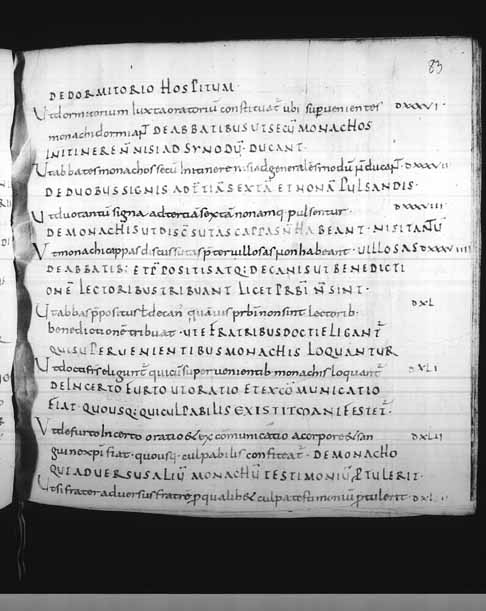 83
DE DORMITORIO HOSPITUM
Ut dormitorium iuxta oratoriũ constituat̃ ubi supervenientes DXXXVI
monachi dormiant̃ DE ABBATIBUS UT SECŨ MONACHOS
IN ITINERE Ñ NISI AD SYNODŨ DUCANT
Ut abbates monachos secũ in itinere n̄ si ad generalẽ sinodũ
DE DUOBUS SIGNIS AD TERTIÃ SEXTÃ ET NONÃ PULSANDIS
Ut duo tantũ signa ad tertiã sextã nonamq; pulsentur DXXXVIII
DE MONACHIS UT DISCÕSUTAS CAPPAS Ñ HABEANT NISI TANTŨ
Ut monachi cappas discusutas p̃ter villosas non habeant VILLOSAS DXXXVIIII
DE ABBATIB; ET P̃POSITIS ATQ; DECANIS UT BENEDICTI
ONẼ LECTORIBUS TRIBUANT LICET PRB̃I Ñ SINT
Ut abbas p̃positus t̃ decan̄ quãvis prbĩ non sint lectorib; DXL
benedictionẽ tribuat UT E FRATRIBUS DOCTI ELIGANT̃
QUI SUPERVENIENTIBUS MONACHIS LOQUANTUR
Ut docti frs̃ eligant̃ qui cũ supervenientib; monachis loquant̃ DXLI
DE INCERTO FURTO UT ORATIO ET EXCÕMUNICATIO
FIAT QUOUSQ; QUI CULPABILIS EXISTIT MANIFESTET̃
Ut de furto incerto oratio & excomunicatio a corpore & san DXLII
guine xp̃i fiat quousq; culpabilis confiteat̃ DE MONACHO
QUI ADVERSUS ALIŨ MONACHŨ TESTIMONIŨ P̃TULERIT
Ut si frater adversus fratrẽ p qualib& culpa testimoniũ p̃tulerit